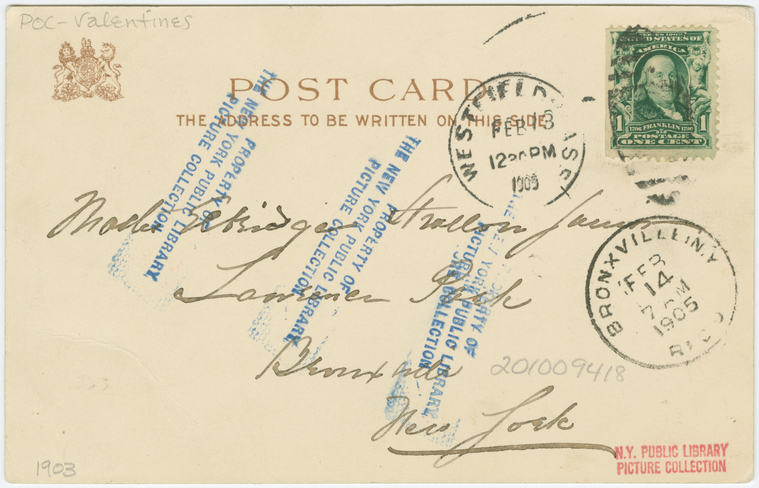 POC - Valentines
POST CARD
THE ADDRESS TO BE WRITTEN ON THIS SIDE
WESTFIELD MASS
FEB 13
1230PM
1905
UNITED STATES OF
AMERICA
1706 FRANKLIN 1790
1 1
ONE CENT
PROPERTY OF
THE NEW YORK PUBLIC LIBRARY
PICTURE COLLECTION
PROPERTY OF
THE NEW YORK PUBLIC LIBRARY
PICTURE COLLECTION
PROPERTY OF
THE NEW YORK PUBLIC LIBRARY
PICTURE COLLECTION
BRONXVILLE N.Y.
FEB
14
7 PM
1905
REC'D
Lawrence Park
Bronxville
New York
201009418
1903
N.Y. PUBLIC LIBRARY
PICTURE COLLECTION